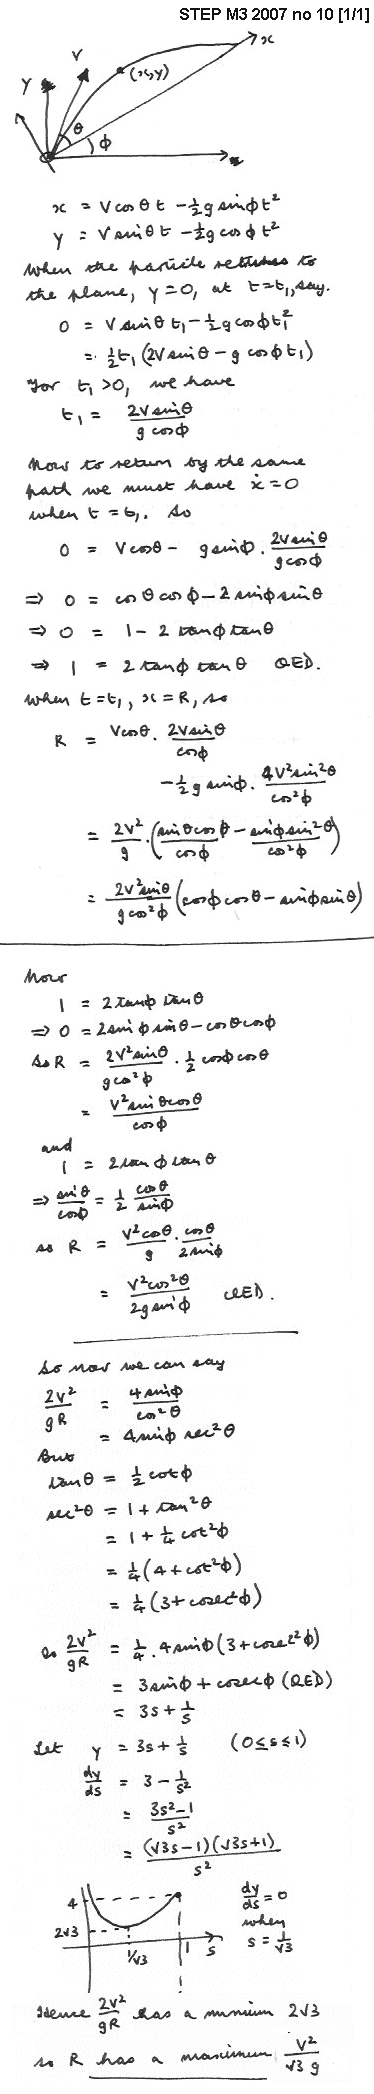 STEP M3 2007 no 10 [1/1]
y V (x,y) x
θ φ
x = Vcosθt - ½g sinφt²
y = Vsinθt - ½g cosφt²
When the particle returns to
the plane, y=0, at t=t₁, say.
0 = Vsinθt₁ - ½gcosφt₁²
= ½t₁(2Vsinθ - g cosφt₁)
For t₁>0, we have
t₁ = 2Vsinθ / gcosφ
Now to return by the same
path we must have ẋ=0
when t=t₁. So
0 = Vcosθ - gsinφ. 2Vsinθ / gcosφ
⇒ 0 = cosθcosφ - 2sinφsinθ
⇒ 0 = 1 - 2tanφtanθ
⇒ 1 = 2tanφtanθ QED.
When t=t₁, x=R, so
R = Vcosθ. 2Vsinθ / cosφ
- ½gsinφ. 4V²sin²θ / cos²φ
= 2V²/g . (sinθcosθ / cosφ - sinφsin²θ / cos²φ)
= 2V²sinθ / gcos²φ (cosφcosθ - sinφsinθ)
Now
1 = 2tanφtanθ
⇒ 0 = 2sinφsinθ - cosθcosφ
So R = 2V²sinθ / gcos²φ . ½cosφcosθ
= V²sinθcosθ / cosφ
and
1 = 2tanφtanθ
⇒ sinθ/cosφ = ½ cosθ/sinφ
so R = V²cosθ/g . cosθ/2sinφ
= V²cos²θ / 2gsinφ QED.
So now we can say
2V²/gR = 4sinφ / cos²θ
= 4sinφ sec²θ
But
tanθ = ½cotφ
sec²θ = 1 + tan²θ
= 1 + ¼cot²φ
= ¼(4 + cot²φ)
= ¼(3 + cosec²φ)
So 2V²/gR = ¼.4sinφ(3 + cosec²φ)
= 3sinφ + cosecφ (QED)
= 3s + 1/s
Let y = 3s + 1/s (0≤s≤1)
dy/ds = 3 - 1/s²
= 3s²-1 / s²
= (√3s-1)(√3s+1) / s²
4
2√3
1/√3 1 s
dy/ds = 0
when
s = 1/√3
Hence 2V²/gR has a minimum 2√3
so R has a maximum V²/√3 g